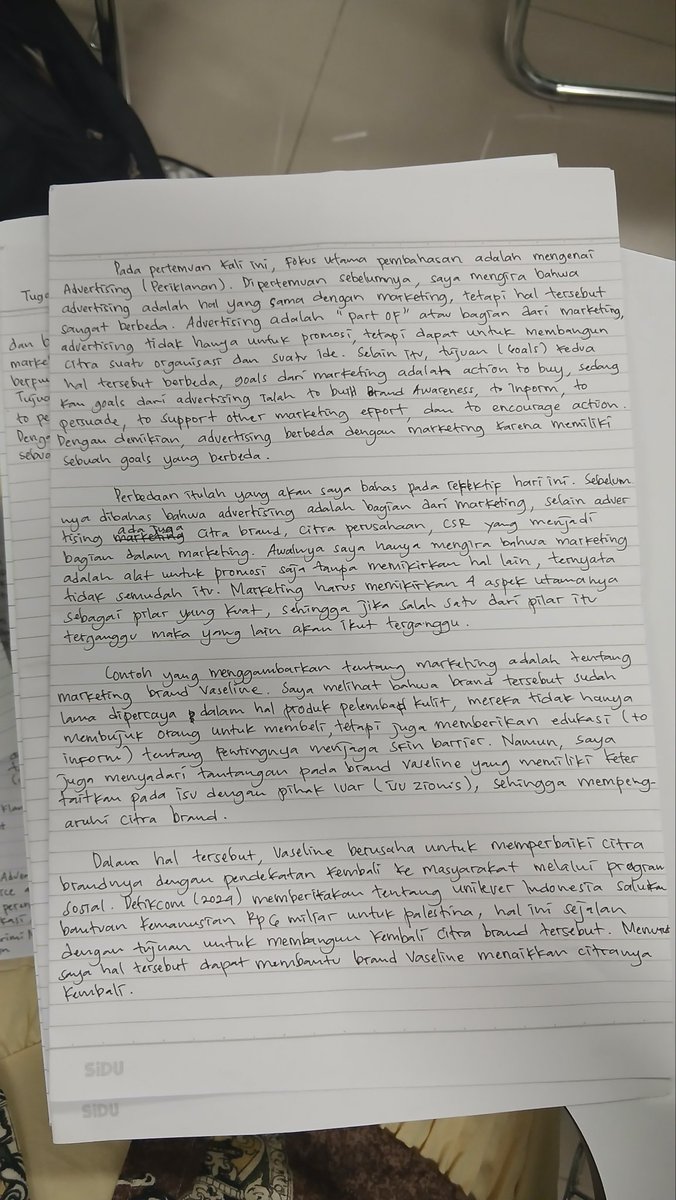 Pada pertemuan kali ini, fokus utama pembahasan adalah mengenai
Advertising (Periklanan). Dipertemuan sebelumnya, saya mengira bahwa
advertising adalah hal yang sama dengan marketing, tetapi hal tersebut
sangat berbeda. Advertising adalah "part of" atau bagian dari marketing,
advertising tidak hanya untuk promosi, tetapi dapat untuk membangun
citra suatu organisasi dan suatu ide. Selain itu, tujuan (Goals) kedua
hal tersebut berbeda, goals dari marketing adalah action to buy, sedang
kan goals dari advertising ialah to built Brand Awareness, to inform, to
persuade, to support other marketing effort, dan to encourage action.
Dengan demikian, advertising berbeda dengan marketing karena memiliki
sebuah goals yang berbeda.
Perbedaan itulah yang akan saya bahas pada refektif hari ini. Sebelum
nya dibahas bahwa advertising adalah bagian dari marketing, selain adver
tising ada juga citra brand, citra perusahaan, CSR yang menjadi
bagian dalam marketing. Awalnya saya hanya mengira bahwa marketing
adalah alat untuk promosi saja tanpa memikirkan hal lain, ternyata
tidak semudah itu. Marketing harus memikirkan 4 aspek utamanya
sebagai pilar yang kuat, sehingga jika salah satu dari pilar itu
terganggu maka yang lain akan ikut terganggu.
Contoh yang menggambarkan tentang marketing adalah tentang
marketing brand vaseline. Saya melihat bahwa brand tersebut sudah
lama dipercaya dalam hal produk pelembab kulit, mereka tidak hanya
membujuk orang untuk membeli, tetapi juga memberikan edukasi (to
inform) tentang pentingnya menjaga skin barrier. Namun, saya
juga menyadari tantangan pada brand vaseline yang memiliki keter
kaitkan pada isu dengan pihak luar (isu zionis), sehingga mempeng-
aruhi citra brand.
Dalam hal tersebut, vaseline berusaha untuk memperbaiki citra
brandnya dengan pendekatan kembali ke masyarakat melalui program
sosial. Detikcom (2024) memberitakan tentang unilever Indonesia salurkan
bantuan kemanusian Rp 6 miliar untuk palestina, hal ini sejalan
dengan tujuan untuk membangun kembali citra brand tersebut. Menurut
saya hal tersebut dapat membantu brand Vaseline menaikkan citranya
kembali.
SiDU
SiDU